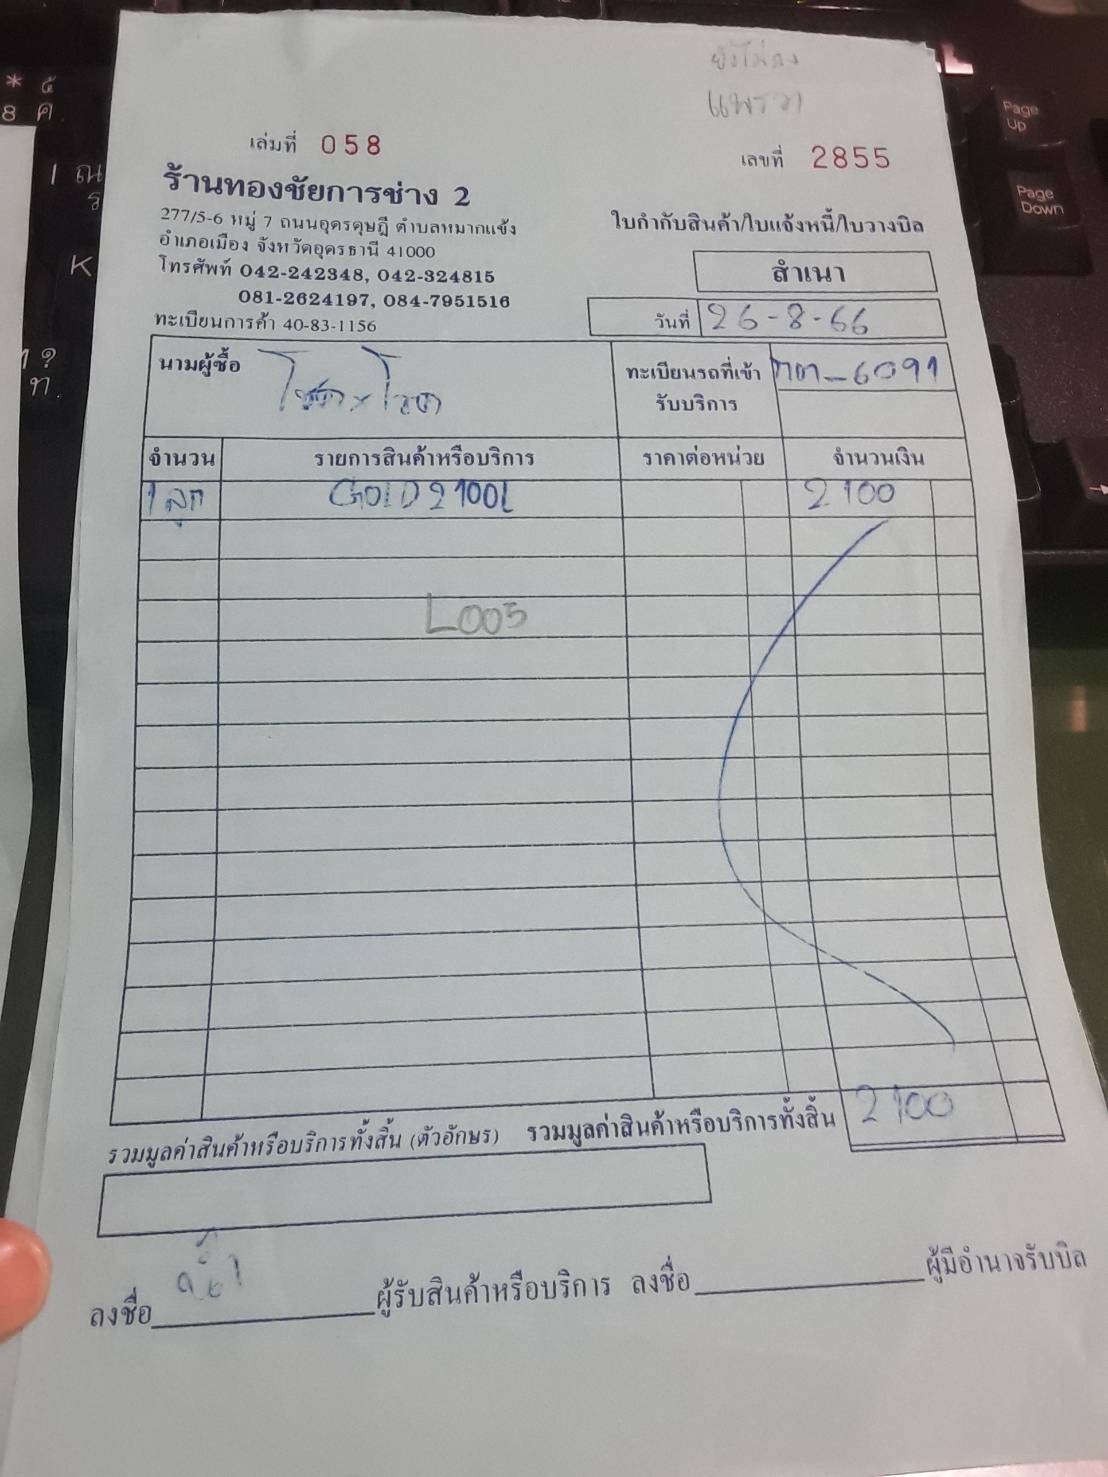 ยังไม่ลง
แพรวา
เล่มที่ 058
เลขที่ 2855
ร้านทองชัยการช่าง 2
277/5-6 หมู่ 7 ถนนอุดรดุษฎี ตำบลหมากแข้ง
อำเภอเมือง จังหวัดอุดรธานี 41000
โทรศัพท์ 042-242348, 042-324815
081-2624197, 084-7951516
ทะเบียนการค้า 40-83-1156
ใบกำกับสินค้า/ใบแจ้งหนี้/ใบวางบิล
สำเนา
วันที่ 26-8-66
นามผู้ซื้อ
ทะเบียนรถที่เข้า
รับบริการ
6091
จำนวน รายการสินค้าหรือบริการ ราคาต่อหน่วย จำนวนเงิน
1 ลูก GOLD 2100L 2100
L005
รวมมูลค่าสินค้าหรือบริการทั้งสิ้น (ตัวอักษร) รวมมูลค่าสินค้าหรือบริการทั้งสิ้น 2100
ลงชื่อ ผู้รับสินค้าหรือบริการ ลงชื่อ ผู้มีอำนาจรับบิล
* ๕
8 ค
ณ
ร
K
ๆ ?
ท.
Page
Up
Page
Down